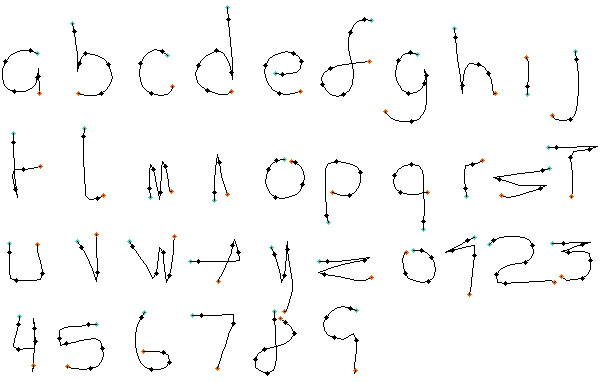 a b c d e f g h i j
k l m n o p q r s T
u v w x y z 0 1 2 3
4 5 6 7 8 9